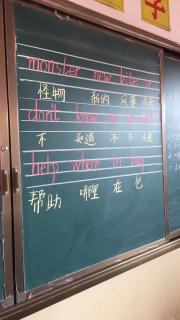 monster new kite or
怪物 新的 风筝
don't know no not not
不 知道 不 不 不是
help where in bag
帮助 哪里 在 包
子